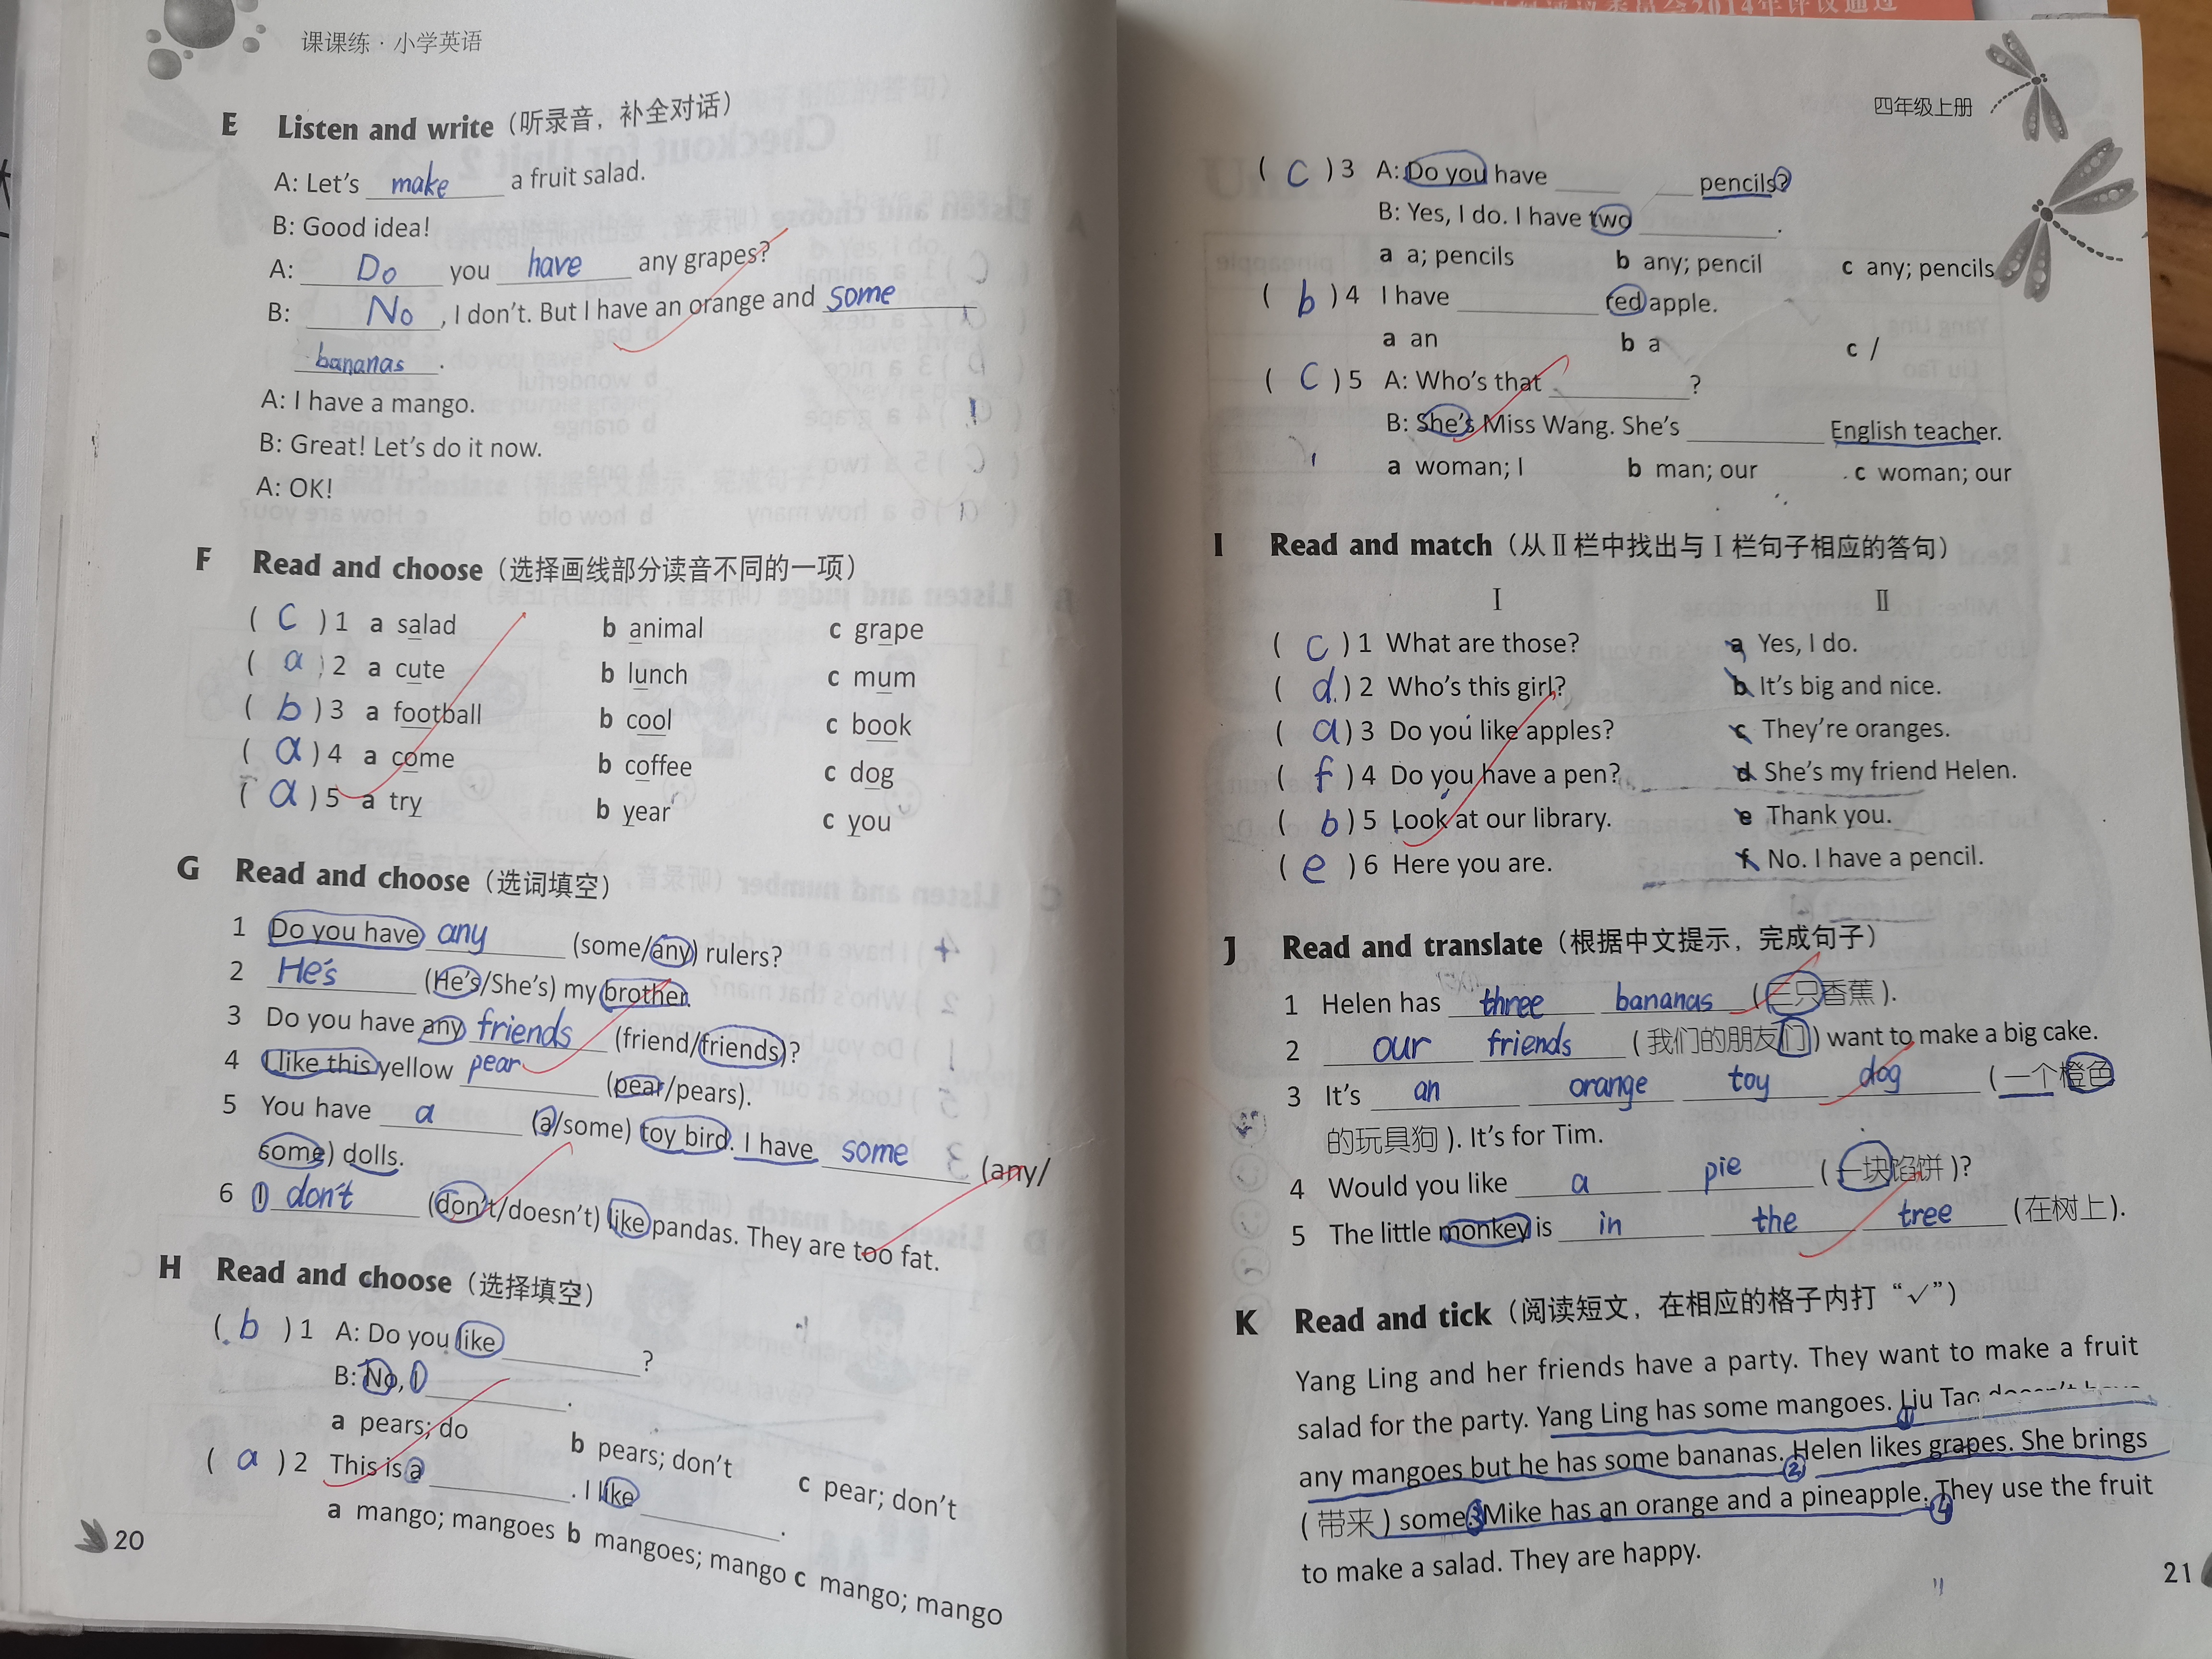 课课练·小学英语
E Listen and write（听录音，补全对话）
A: Let's make a fruit salad.
B: Good idea!
A: Do you have any grapes?
B: No, I don't. But I have an orange and some
bananas.
A: I have a mango.
B: Great! Let's do it now.
A: OK!
F Read and choose（选择画线部分读音不同的一项）
( C ) 1 a salad b animal c grape
( a ) 2 a cute b lunch c mum
( b ) 3 a football b cool c book
( a ) 4 a come b coffee c dog
( a ) 5 a try b year c you
G Read and choose（选词填空）
1 Do you have any (some/any) rulers?
2 He's (He's/She's) my brother.
3 Do you have any friends (friend/friends)?
4 I like this yellow pear (pear/pears).
5 You have a (a/some) toy bird. I have some (any/
some) dolls.
6 I don't (don't/doesn't) like pandas. They are too fat.
H Read and choose（选择填空）
( b ) 1 A: Do you like ________?
B: No, I ________.
a pears; do b pears; don't c pear; don't
( a ) 2 This is a ________. I like ________.
a mango; mangoes b mangoes; mango c mango; mango
20
四年级上册
( C ) 3 A: Do you have ____ ____ pencils?
B: Yes, I do. I have two ________.
a a; pencils b any; pencil c any; pencils
( b ) 4 I have ________ red apple.
a an b a c /
( C ) 5 A: Who's that ________?
B: She's Miss Wang. She's ________ English teacher.
a woman; I b man; our c woman; our
I Read and match（从Ⅱ栏中找出与Ⅰ栏句子相应的答句）
Ⅰ Ⅱ
( C ) 1 What are those? a Yes, I do.
( d ) 2 Who's this girl? b It's big and nice.
( a ) 3 Do you like apples? c They're oranges.
( f ) 4 Do you have a pen? d She's my friend Helen.
( b ) 5 Look at our library. e Thank you.
( e ) 6 Here you are. f No. I have a pencil.
J Read and translate（根据中文提示，完成句子）
1 Helen has three bananas (三只香蕉).
2 our friends (我们的朋友们) want to make a big cake.
3 It's an orange toy dog (一个橙色
的玩具狗). It's for Tim.
4 Would you like a pie (一块馅饼)?
5 The little monkey is in the tree (在树上).
K Read and tick（阅读短文，在相应的格子内打“√”）
Yang Ling and her friends have a party. They want to make a fruit
salad for the party. Yang Ling has some mangoes. ① Liu Tao doesn't have
any mangoes but he has some bananas. ② Helen likes grapes. She brings
(带来) some. ③ Mike has an orange and a pineapple. ④ They use the fruit
to make a salad. They are happy.
21